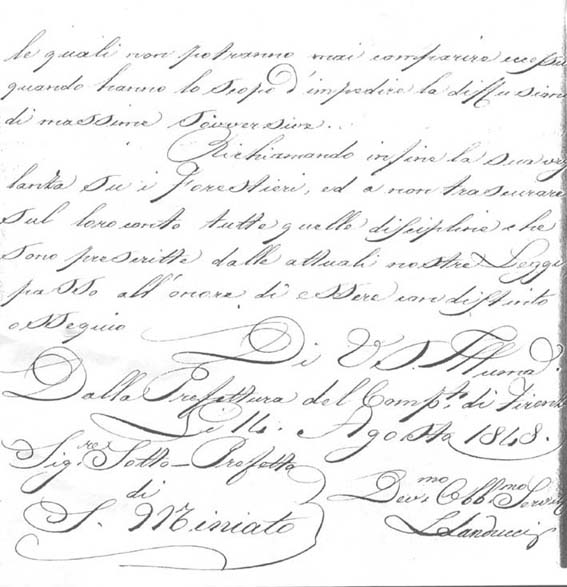 le quali non potranno mai comparire eccessi
quando hanno lo scopo d'impedire la diffusione
di massime sovversive.
Richiamando infine la sua vigi
lanza su i Forestieri, ed a non trascurare
sul loro conto tutte quelle discipline che
sono prescritte dalle attuali nostre Leggi
passo all'onore di essere con distinto
ossequio
Di V. S. Illuma.
Dalla Prefettura del Compto. di Firenze
Li 14. Agosto 1848.
Sigre. Sotto-Prefetto
di
S. Miniato
Devmo. Obbmo. Servit
L. Landucci